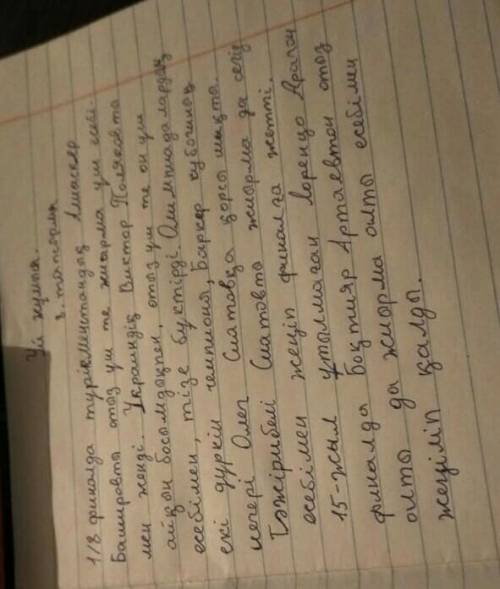 Үй жұмыс.
2. тапсырма
1/8 финалда түрікменстандық Алмаскер
Башировты отоз үш те жиырма үш есебі-
мен жеңді. Украиндік Виктор Поляковты
айқын босымдықпен, отоз үш те он үш
есебімен, тізе бүктірді. Олимпиадалардың
екі дүркін чемпионы, Баркер кубогының
иегері Олег Саитовқа қарсы шықты.
Тәжірибелі Саитовты жиырма да сегіз
есебімен жеңіп финалға жетті.
15-жыл ұтылмаған Лоренцо Арагон
финалда Бақтияр Артаевтон отоз
олты да жиырма олты есебімен
жеңіліп қалды.